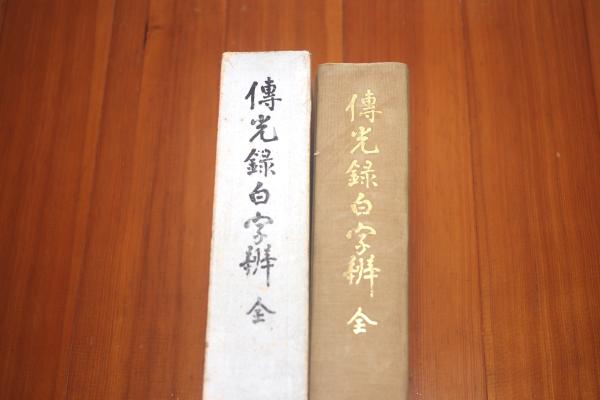 傳光録白字辨 全
傳光録白字辨 全